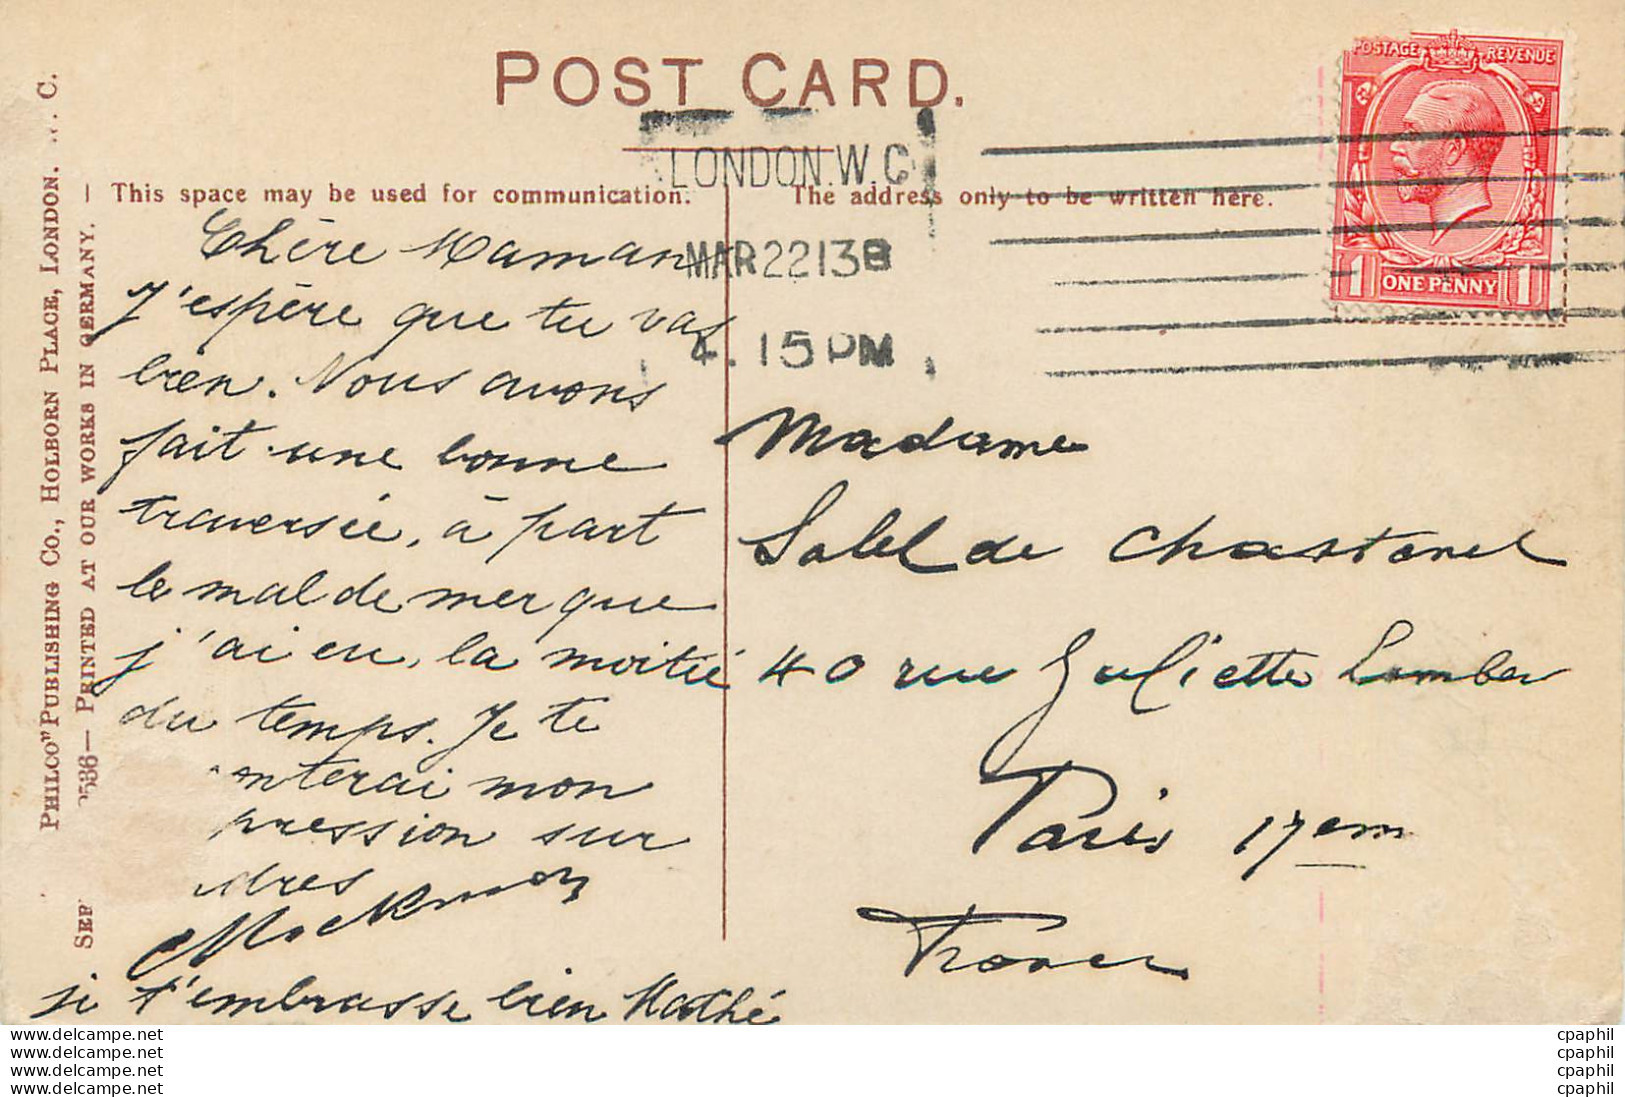 POST CARD.
This space may be used for communication.
The address only to be written here.
POSTAGE REVENUE
1 ONE PENNY 1
LONDON.W.C
MAR 22 13
4.15 PM
PHILCO" PUBLISHING CO., HOLBORN PLACE, LONDON. C.
PRINTED AT OUR WORKS IN GERMANY.
Chère Maman
J'espère que tu vas
bien. Nous avons
fait une bonne
traversée, à part
le mal de mer que
j'ai eu, la moitié
du temps. Je te
onterai mon
pression sur
dres
je t'embrasse bien
Madame
de Chastenel
40 rue Juliette Lamber
Paris 17em
France
www.delcampe.net
www.delcampe.net
www.delcampe.net
www.delcampe.net
cpaphil
cpaphil
cpaphil
cpaphil